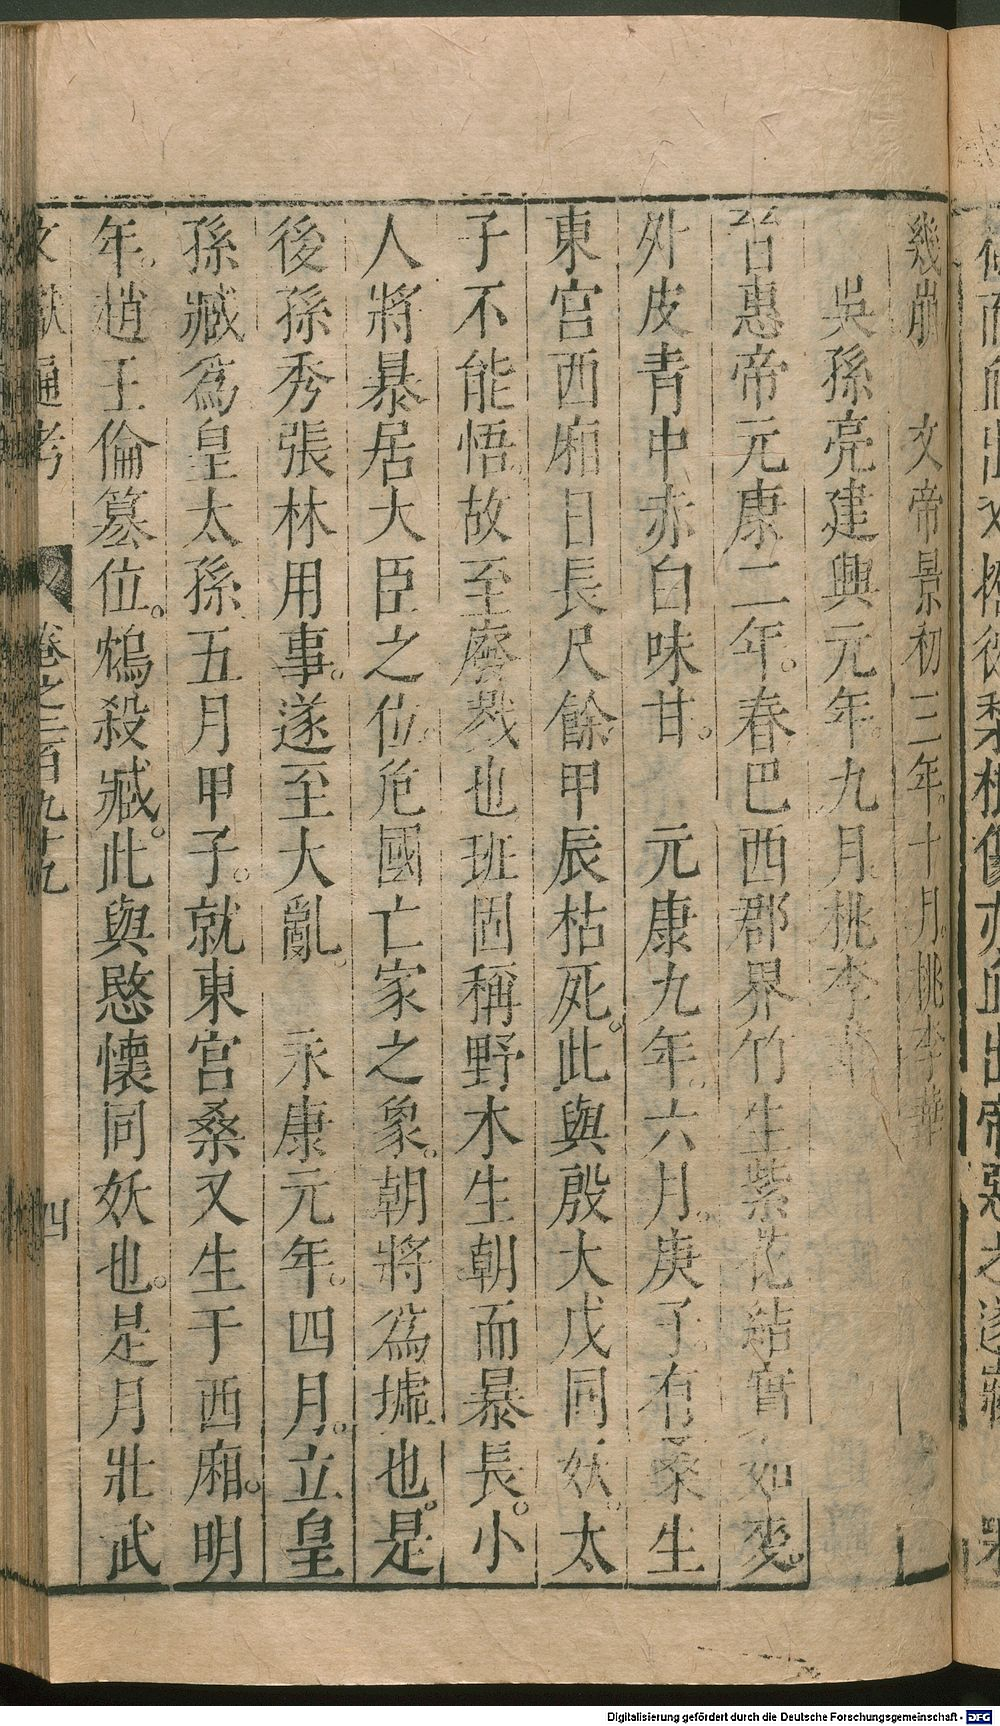 幾崩　文帝景初三年。十月。桃李華
吳孫亮建興元年。九月。桃李華
晉惠帝元康二年。春巴西郡界竹生紫花結實如麥。
外皮青中赤白味甘。　元康九年。六月。庚子。有桑生
東宮西廂日長尺餘甲辰枯死。此與殷大戊同妖。太
子不能悟。故至廢戮也班固稱野木生朝而暴長。小
人將暴居大臣之位。危國亡家之象。朝將爲墟也。是
後孫秀張林用事。遂至大亂。　永康元年。四月。立皇
孫臧爲皇太孫。五月甲子。就東宮桑又生于西廂。明
年。趙王倫篡位。鴆殺臧。此與愍懷同妖也。是月壯武
文獻通考　卷之三百九十九　四
Digitalisierung gefördert durch die Deutsche Forschungsgemeinschaft - DFG